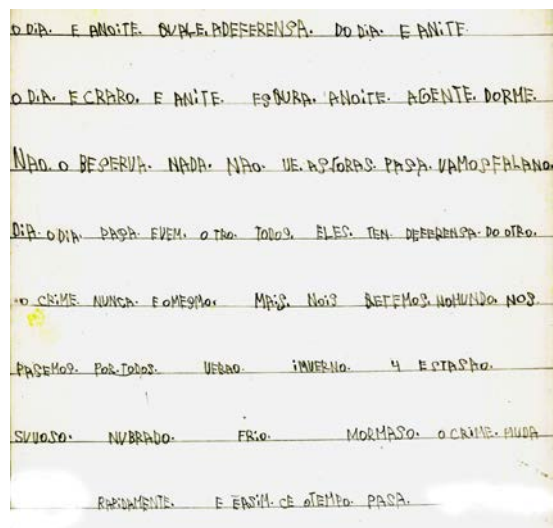 O DIA. E ANOiTE. QUALE. ADEFERENSA. DO DiA. E ANiTE.
O DiA. E CRARO. E ANiTE. ESQURA. ANOiTE. AGENTE. DORME.
NAO. O BESERVA. NADA. NAO. VE. AS ORAS. PASA. VAMOS FALANO.
DiA. O DiA. PASA. EVEM. O TRO. TODOS. ELES. TEN. DEFERENSA. DO OTRO.
O CRiME. NUNCA. E OMESMO. MAiS. NOiS BETEMOS. NOMUNDO. NOS
PASEMOS. POR. TODOS. VERAO iMVERNO. 4 ESTASAO.
SVUOSO. NUBRADO. FRiO. MORMASO. O CRiME. MUDA
RAPiDAMENTE. E EASiM. CE OTEMPO PASA.